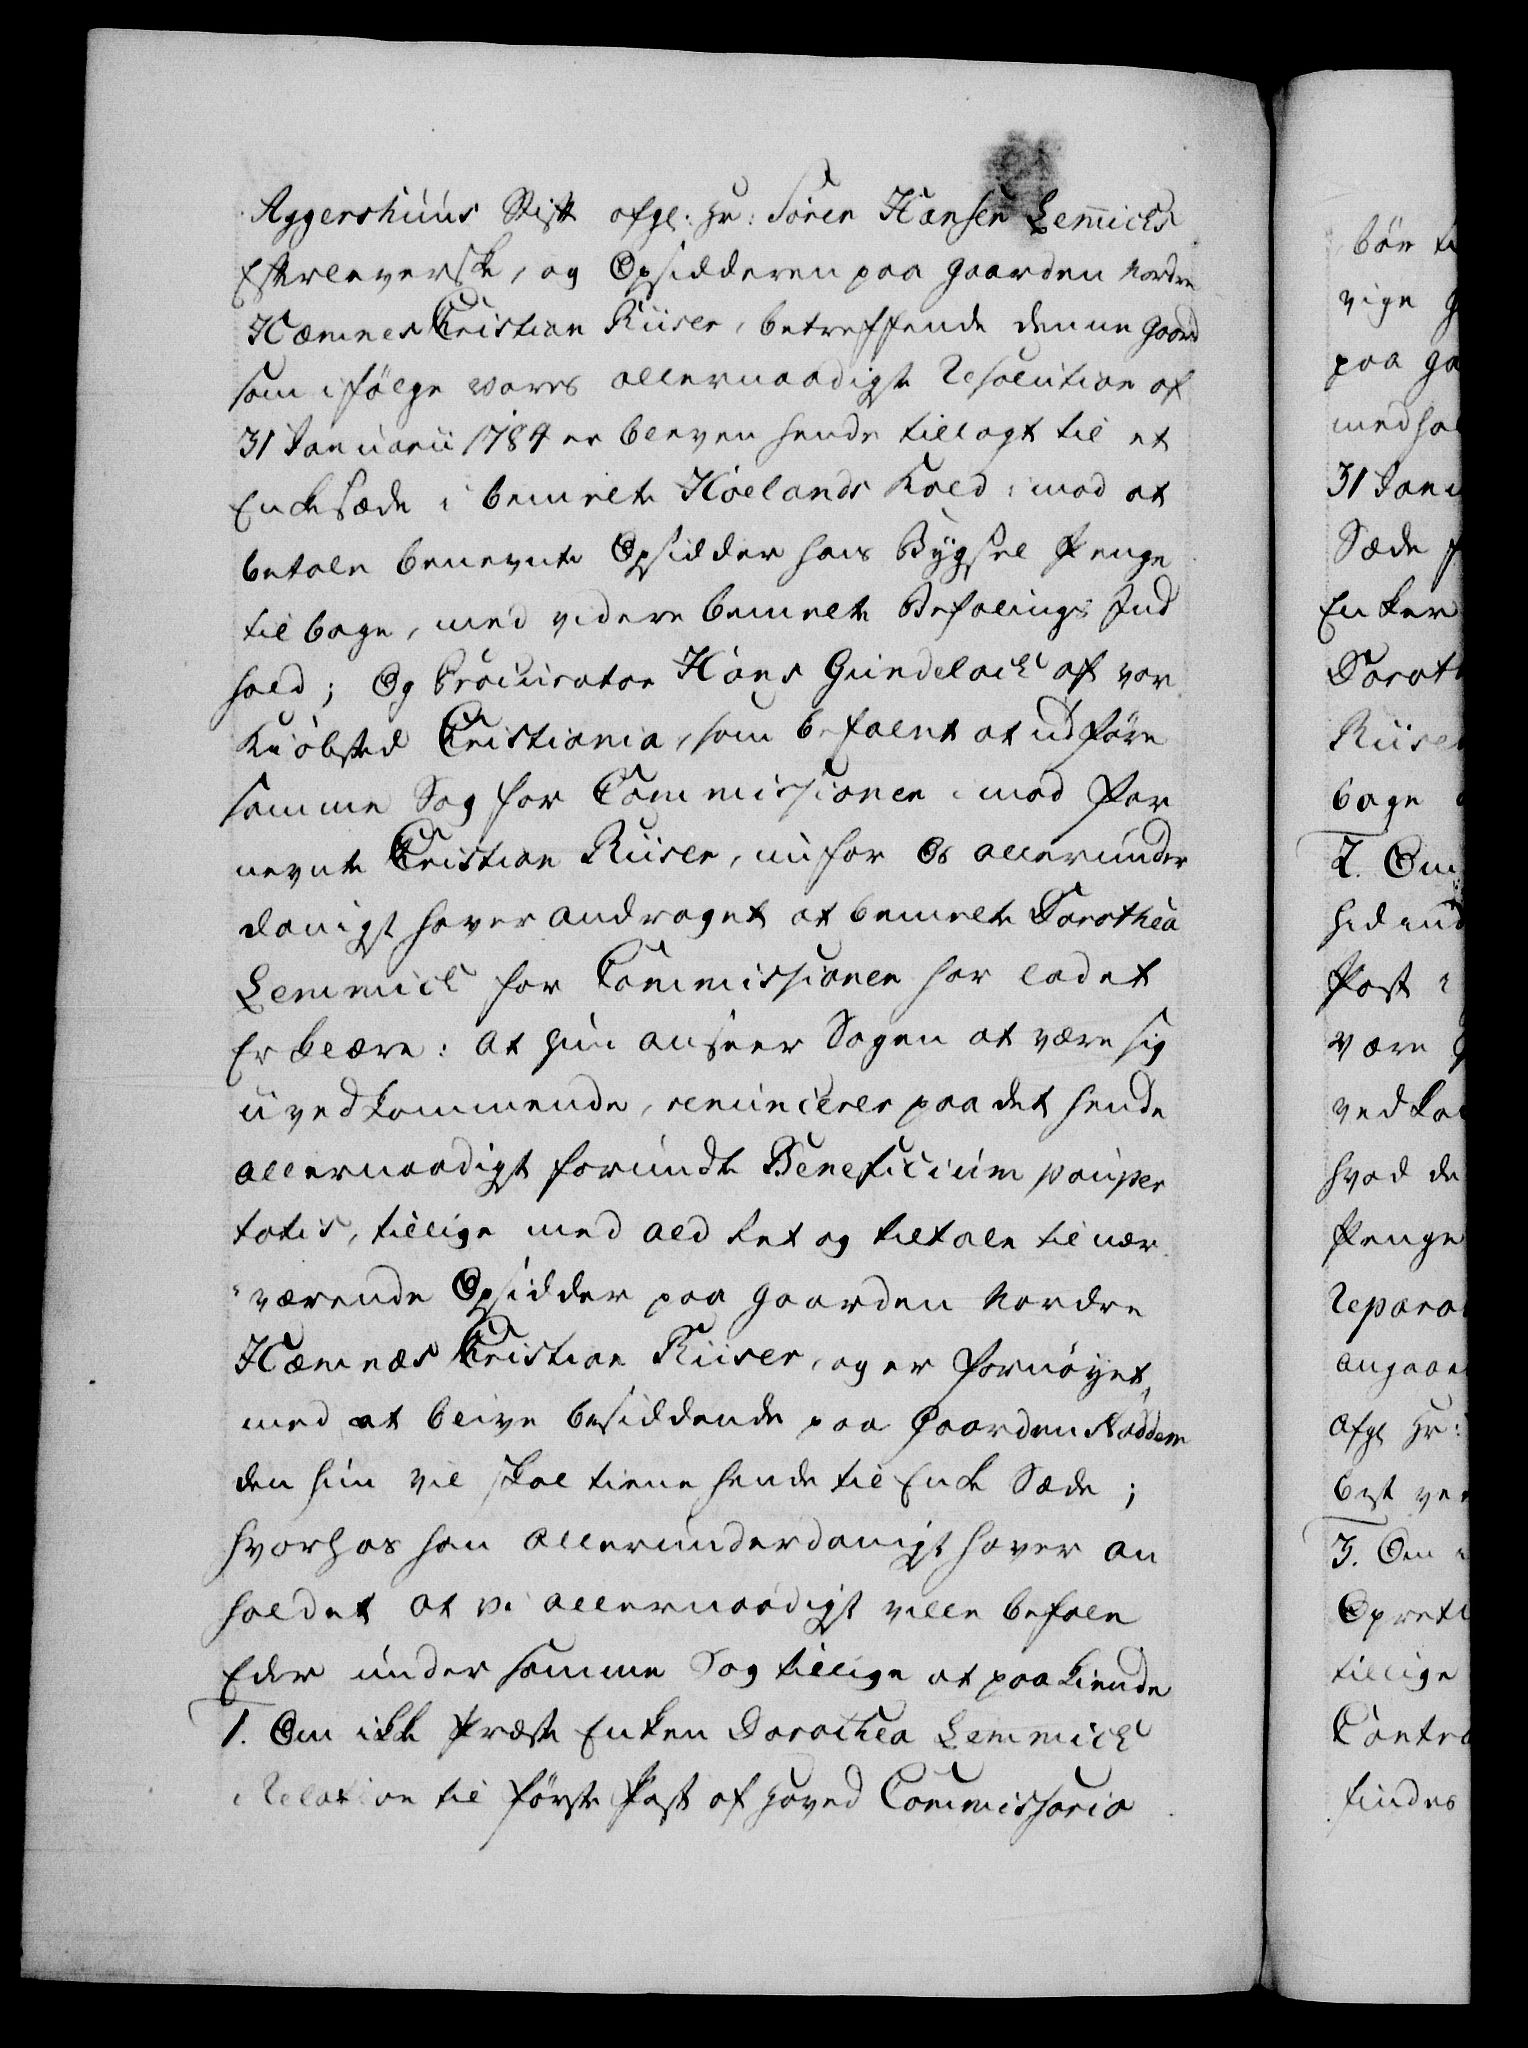 Aggershuus Stift afgl: Hr: Sören Hansen Lem̄ichs
Efterleverske, og Opsidderen paa Gaarden Nordre
Hæmnes Christian Riiser, betreffende denne Gaard
som ifölge vores allernaadigste Resolution af
31 Januarii 1784 er bleven hende tillagt til et
Enckesæde i bemelte Hölands Kald imod at
betale benevnte Opsidder hans Bÿgsel Penge
tilbage, med videre bemelte Befalings Ind
hold; Og Procurator Hans Gundelach af vor
Kiöbsted Christiania, som befalet at udföre
samme Sag for Commissionen imod for
nevnte Christian Riiser, nu for Os allerunder
danigst haver andraget at bemelte Dorothea
Lemmich for Commissionen har ladet
Erklære: At hun anseer Sagen at være sig
uvedkommende, renuncerer paa det hende
allernaadigst forundte Beneficium pauper
tatis, tillige med ald Ret og tiltale til nær
værende Opsidder paa Gaarden Nordre
Hæmnæs Christian Riiser, og er fornöyet,
med at blive besiddende paa Gaarden Naddem
den hun vil skal tiene hende til Encke Sæde;
hvorhos han allerunderdanigst haver an
holdet at vi allernaadigst ville befale
Eder under samme Sag tillige at paakiende
1. Om ikke Præste Enken Dorothea Lemmich
i Relation til förste Post af Hoved Commissorio
bör ti
vige G
paa Ga
medhol
31 Janu
Sæde
Enker
Doroth
Riiser
bage
2. Om
hidind
Post
være
vedko
hvad de
Penge
Reparat
angaae
Afgl Hr:
best ve
3. Om
Opret
tillige
Contra
findes